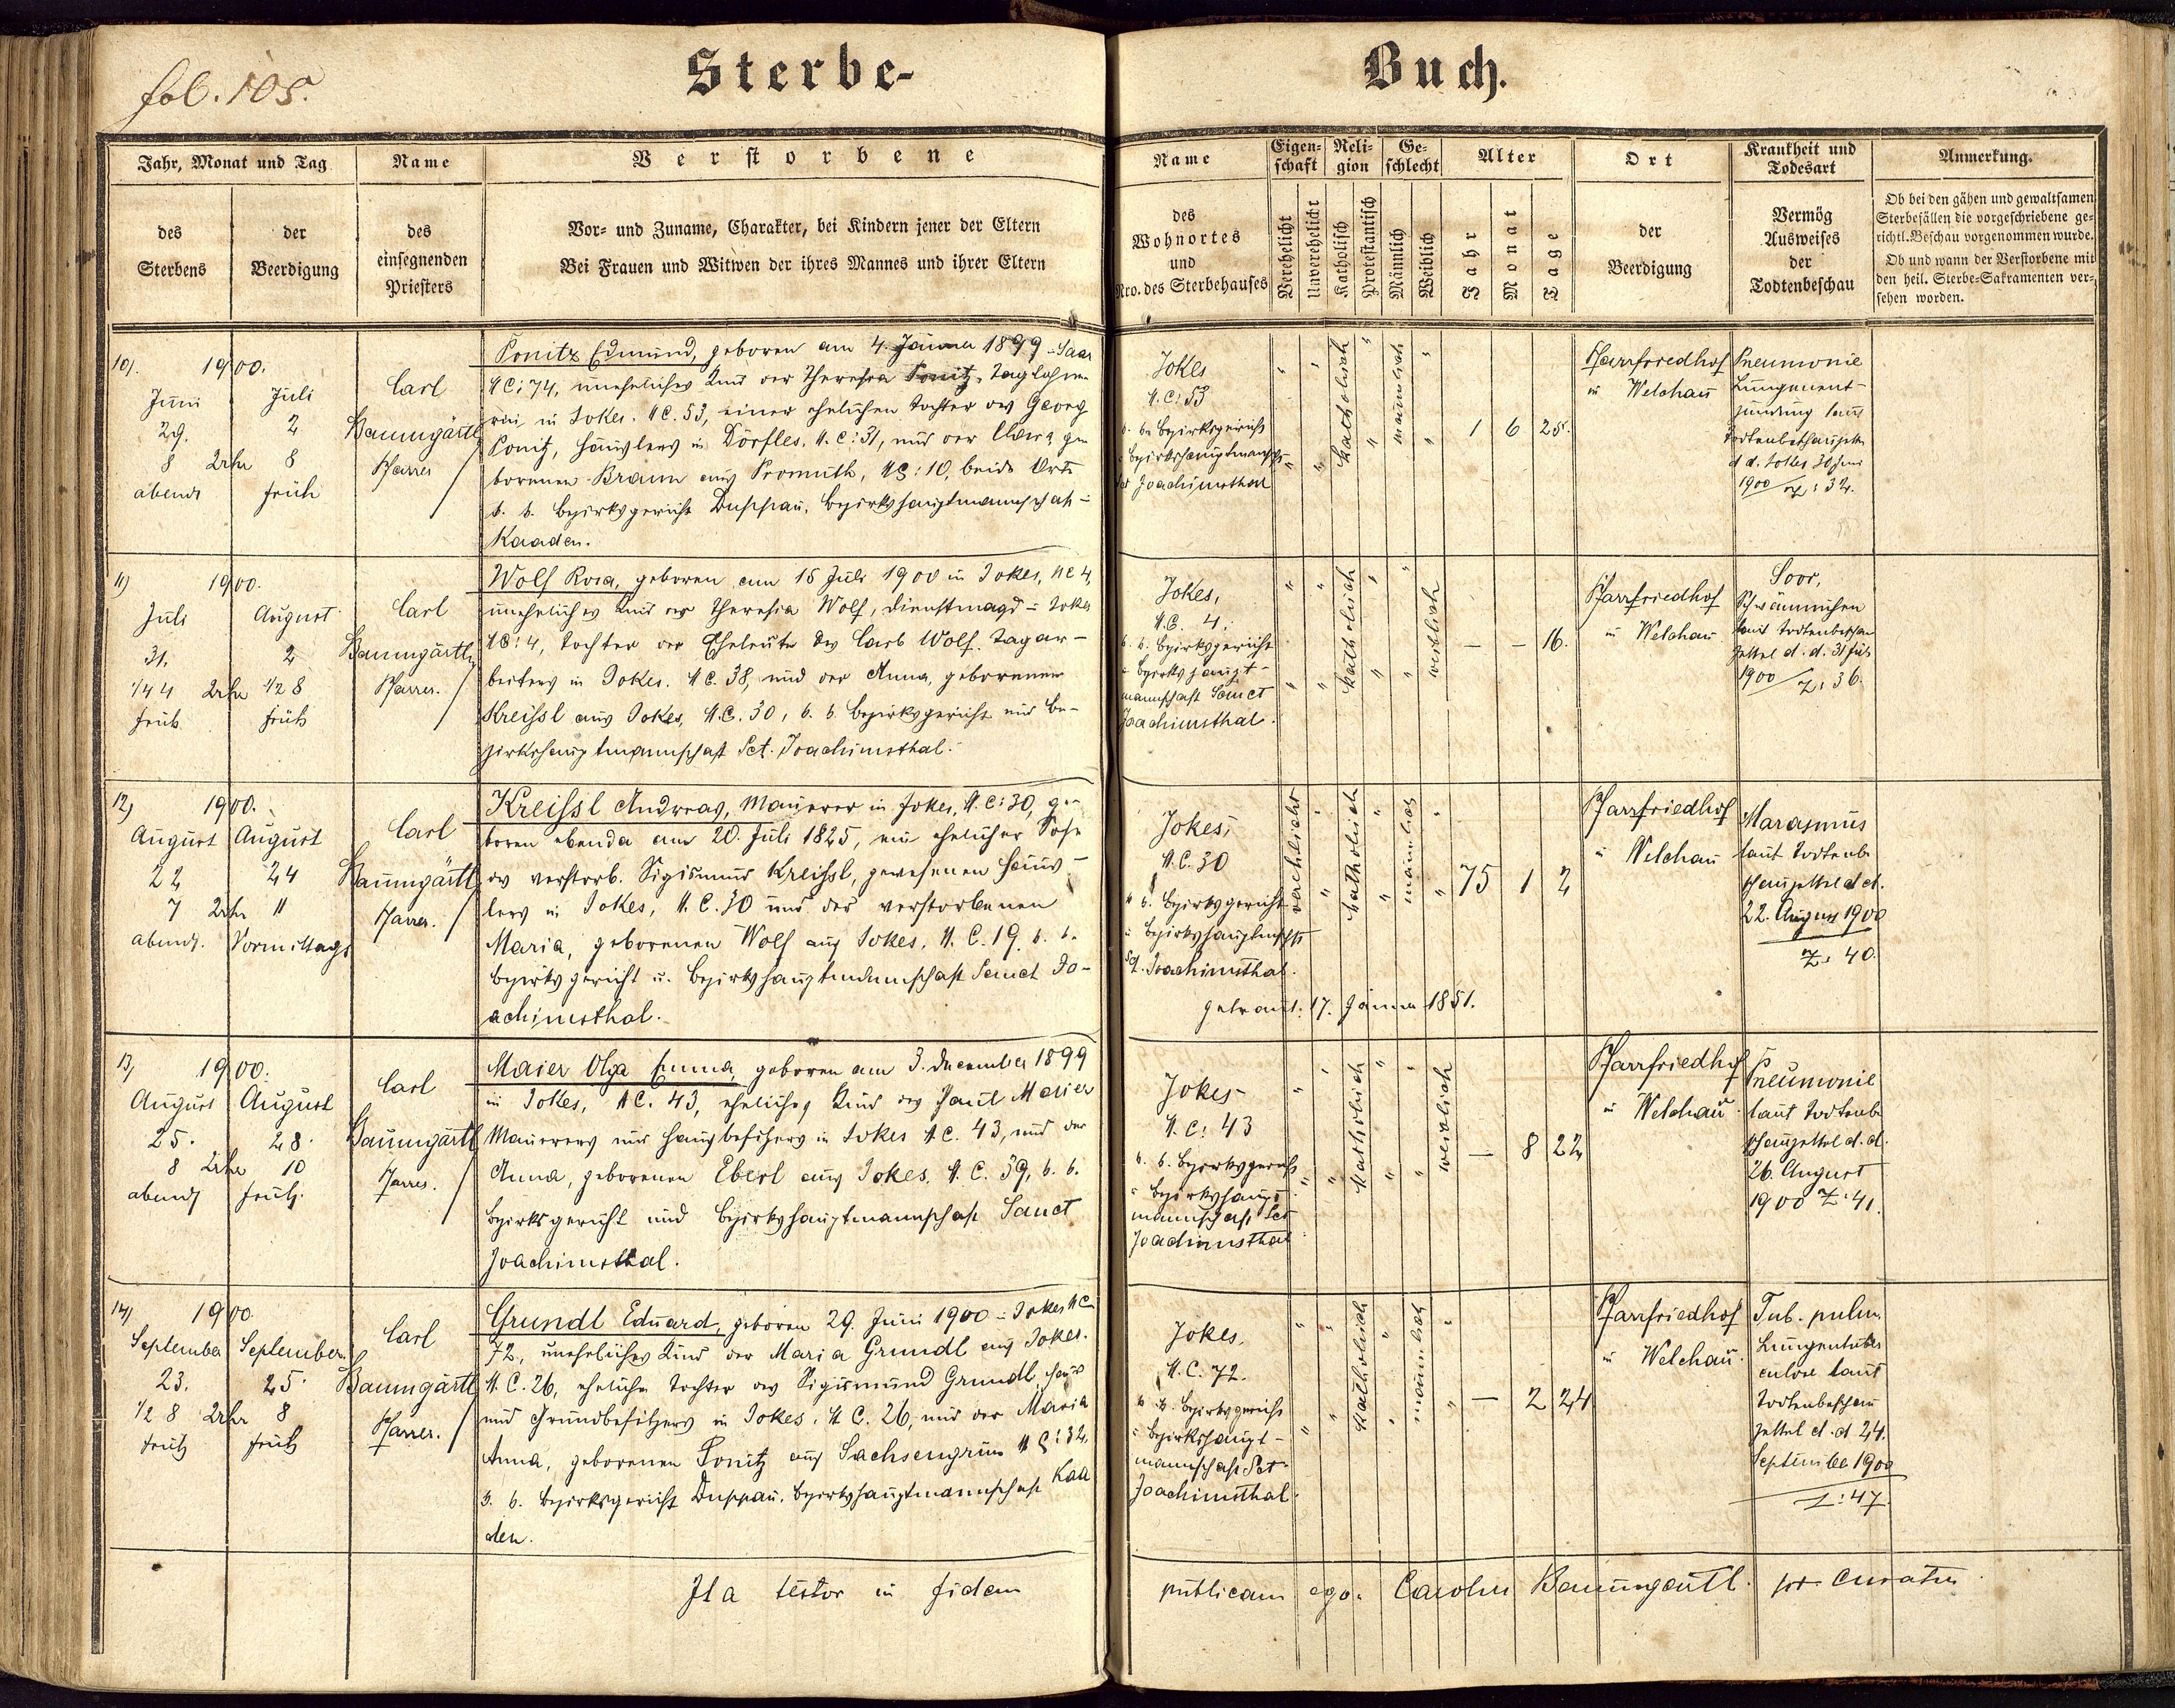 fol. 105.
Sterbe-
Buch.
Jahr, Monat und Tag
des Sterbens
der Beerdigung
Name
des einsegnenden Priesters
Verstorbene
Vor- und Zuname, Charakter, bei Kindern jener der Eltern
Bei Frauen und Witwen der ihres Mannes und ihrer Eltern
Name
des Wohnortes und Nro. des Sterbehauses
Eigenschaft
Verehelicht
Unverehelicht
Religion
Katholisch
Protestantisch
Geschlecht
Männlich
Weiblich
Alter
Jahr
Monat
Tage
Ort
der Beerdigung
Krankheit und Todesart
Vermög Ausweises der Todtenbeschau
Anmerkung.
Ob bei den gähen und gewaltsamen
Sterbefällen die vorgeschriebene ge-
richtl. Beschau vorgenommen wurde.
Ob und wann der Verstorbene mit
den heil. Sterbe-Sakramenten ver-
sehen worden.
10). 1900.
Juni 29. 8 Uhr abends
Juli 2 8 früh
Carl
Baumgärtl
Pfarrer
Ponitz Edmund, geboren am 4. Jänner 1899 in Saar
NC: 74, uneheliches Kind der Theresia Ponitz, Taglöhne-
rin in Jokes. NC. 53, einer ehelichen Tochter des Georg
Ponitz, Häuslers in Dörfles. N.C: 31, und der Maria ge-
borenen Braun aus Promuth, NC: 10, beide Orte
k. k. Bezirksgericht Duppau, Bezirkshauptmannschaft
Kaaden.
Jokes
N.C: 53
k. k. Bezirksgericht
u. Bezirkshauptmannschft
Sct Joachimsthal
katholisch
männlich
1 6 25.
Pfarrfriedhof
in Welchau
Pneumonie
Lungenent-
zündung laut
Todtenbeschauzettel
d. d. Jokes 30 Juni
1900 Z: 32.
11) 1900.
Juli 31. 1/4 4 Uhr früh
August 2 1/2 8 früh
Carl
Baumgärtl
Pfarrer.
Wolf Rosa, geboren am 15 Juli 1900 in Jokes, NC 4,
uneheliches Kind der Theresia Wolf, Dienstmagd in Jokes
NC: 4, Tochter der Eheleute des Carl Wolf. Tagar-
beiters in Jokes. N.C. 38, und der Anna, geborenen
Kreissl aus Jokes, N.C. 30, k. k. Bezirksgericht und Be-
zirkshauptmannschaft Sct. Joachimsthal.
Jokes,
N.C. 4.
k. k. Bezirksgericht
u. Bezirkshaupt-
mannschaft Sanct
Joachimsthal.
katholisch
weiblich
— — 16.
Pfarrfriedhof
in Welchau
Soor,
Schwämmchen
laut Todtenbeschau
zettel d. d. 31 Juli
1900 Z: 36.
12) 1900.
August 22 7 Uhr abends.
August 24 11 Vormittags
Carl
Baumgärtl
Pfarrer.
Kreissl Andreas, Maurer in Jokes, N.C: 30, ge-
boren ebenda am 20. Juli 1825, ein ehelicher Sohn
des verstorb. Sigismund Kreissl, gewesenen Häus-
lers in Jokes, N.C. 30 und der verstorbenen
Maria, geborenen Wolf aus Jokes, N.C. 19. k. k.
Bezirksgericht u. Bezirkshauptmannschaft Sanct Jo-
achimsthal.
Jokes,
N.C. 30
k. k. Bezirksgericht
u. Bezirkshauptmschft
Sct. Joachimsthal.
verehelicht
katholisch
männlich
75 1 2
getraut: 17. Jänner 1851.
Pfarrfriedhof
in Welchau
Marasmus
laut Todtenbe
schauzettel d. d.
22. August 1900
Z: 40.
13) 1900.
August 25. 8 Uhr abends
August 28. 10 früh.
Carl
Baumgärtl
Pfarrer.
Maier Olga Emma, geboren am 3. December 1899
in Jokes, NC. 43, eheliches Kind des Josef Maier
Maurers und Hausbesitzers in Jokes N.C. 43, und der
Anna, geborenen Eberl aus Jokes. N.C. 39, k. k.
Bezirksgericht und Bezirkshauptmannschaft Sanct
Joachimsthal.
Jokes
N.C: 43
k. k. Bezirksgericht
u. Bezirkshaupt
mannschaft Sct
Joachimsthal
katholisch
weiblich
— 8 22
Pfarrfriedhof
in Welchau.
Pneumonie
laut Todtenbe
schauzettel d. d.
26. August
1900 Z: 41.
14) 1900.
September 23. 1/2 8 Uhr früh
September 25. 8 früh
Carl
Baumgärtl
Pfarrer.
Grundl Eduard, geboren 29. Juni 1900 in Jokes NC
72, uneheliches Kind der Maria Grundl aus Jokes.
N.C. 26, eheliche Tochter des Sigismund Grundl, Haus
und Grundbesitzers in Jokes. N.C. 26, und der Maria
Anna, geborenen Ponitz aus Sachsengrün NC: 32,
k. k. Bezirksgericht Duppau, Bezirkshauptmannschaft Kaa
den.
Jokes.
N.C. 72.
k. k. Bezirksgericht
u. Bezirkshaupt-
mannschaft Sct
Joachimsthal.
katholisch
männlich
— 2 24
Pfarrfriedhof
in Welchau.
Tub. pulm.
Lungentuber
culose laut
Todtenbeschau
zettel d. d 24.
September 1900
Z: 47.
Ita testor in fidem publicam ego: Carolus Baumgärtl. curatus